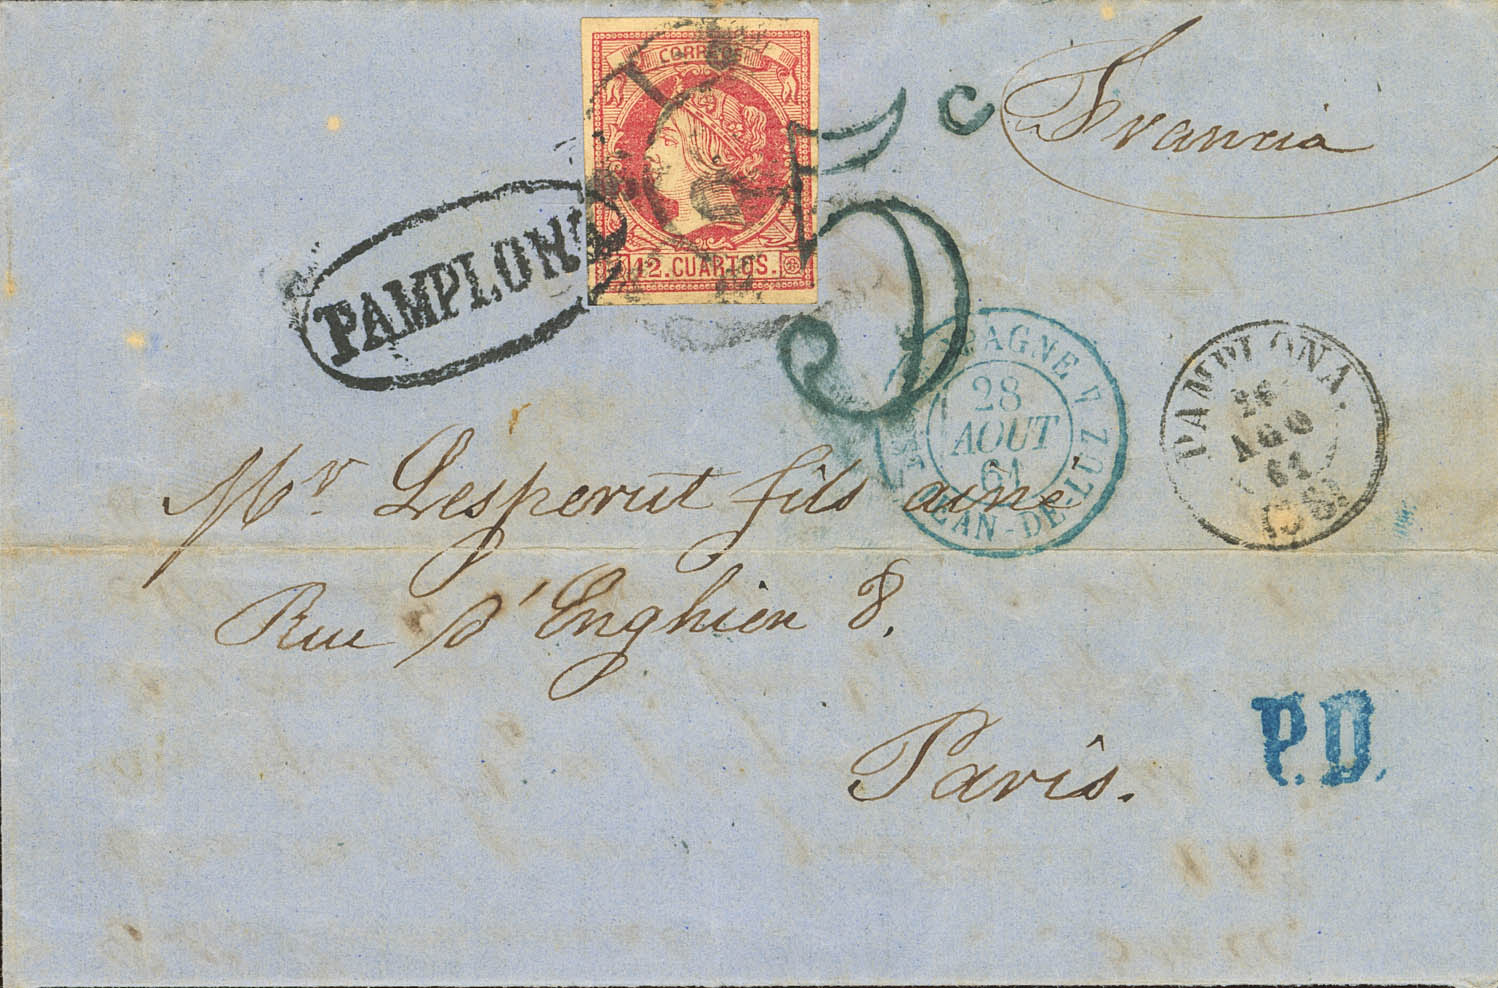 CORREOS
12. CUARTOS.
5 c
Francia
PAMPLON
PAGNE
28
AOUT
61
JEAN-DE-LUZ
PAMPLONA.
26
AGO
61
Mr. Lesperut fils ainé
Rue d'Enghien 8.
Paris.
P.D.